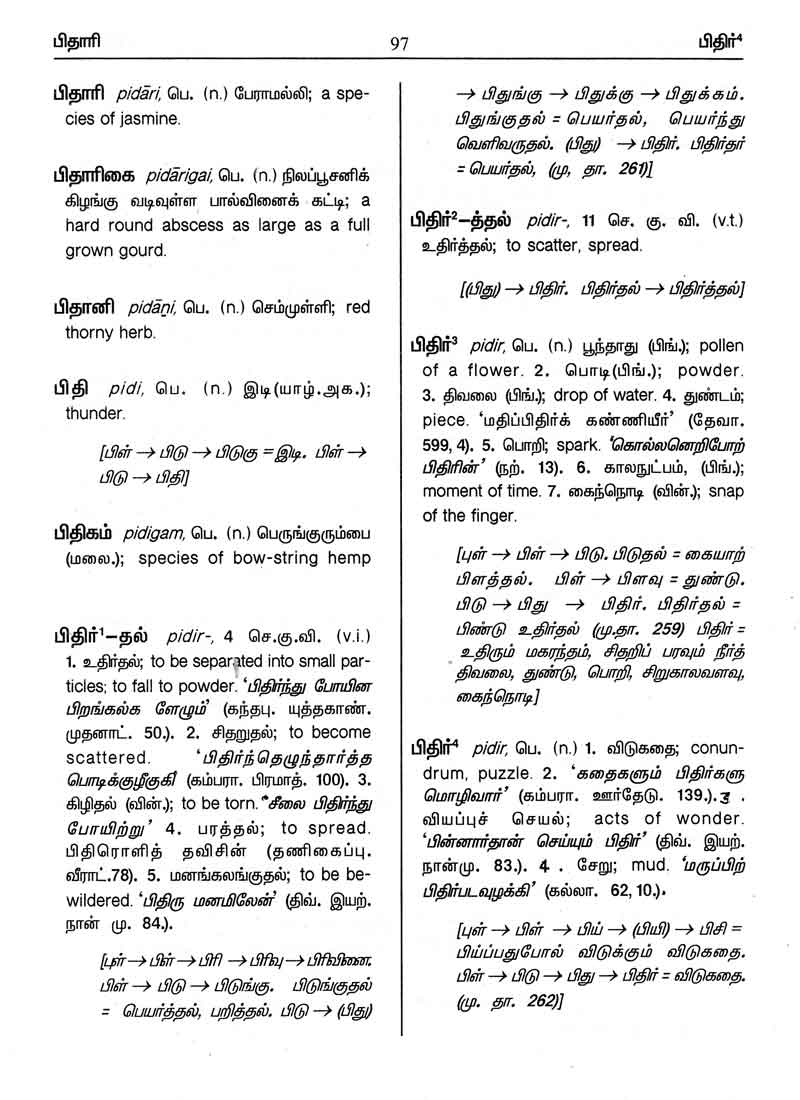 பிதாரி 97 பிதிர்⁴
பிதாரி pidāri, பெ. (n.) பேராமல்லி; a spe-
cies of jasmine.
பிதாரிகை pidārigai, பெ. (n.) நிலப்பூசனிக்
கிழங்கு வடிவுள்ள பால்வினைக் கட்டி; a
hard round abscess as large as a full
grown gourd.
பிதானி pidāṉi, பெ. (n.) செம்முள்ளி; red
thorny herb.
பிதி pidi, பெ. (n.) இடி(யாழ்.அக.);
thunder.
[பிள் → பிடு → பிடுகு = இடி. பிள் →
பிடு → பிதி]
பிதிகம் pidigam, பெ. (n.) பெருங்குரும்பை
(மலை.); species of bow-string hemp
பிதிர்¹–தல் pidir-, 4 செ.கு.வி. (v.i.)
1. உதிர்தல்; to be separated into small par-
ticles; to fall to powder. ‘பிதிர்ந்து போயின
பிறங்கல்க ளேழும்’ (கந்தபு. யுத்தகாண்.
முதனாட். 50.). 2. சிதறுதல்; to become
scattered. ‘பிதிர்ந்தெழுந்தார்த்த
பொடிக்குழீகுகி’ (கம்பரா. பிரமாத். 100). 3.
கிழிதல் (வின்.); to be torn. “சீலை பிதிர்ந்து
போயிற்று’ 4. பரத்தல்; to spread.
பிதிரொளித் தவிசின் (தணிகைப்பு.
வீராட்.78). 5. மனங்கலங்குதல்; to be be-
wildered. ‘பிதிரு மனமிலேன்’ (திவ். இயற்.
நான் மு. 84.).
[புள் → பிள் → பிரி → பிரிவு → பிரிவினை.
பிள் → பிடு → பிடுங்கு. பிடுங்குதல்
= பெயர்த்தல், பறித்தல். பிடு → (பிது)
→ பிதுங்கு → பிதுக்கு → பிதுக்கம்.
பிதுங்குதல் = பெயர்தல், பெயர்ந்து
வெளிவருதல். (பிது) → பிதிர். பிதிர்தர்
= பெயர்தல், (மு, தா. 261)]
பிதிர்²–த்தல் pidir-, 11 செ. கு. வி. (v.t.)
உதிர்த்தல்; to scatter, spread.
[(பிது) → பிதிர். பிதிர்தல் → பிதிர்த்தல்]
பிதிர்³ pidir, பெ. (n.) பூந்தாது (பிங்.); pollen
of a flower. 2. பொடி(பிங்.); powder.
3. திவலை (பிங்.); drop of water. 4. துண்டம்;
piece. ‘மதிப்பிதிர்க் கண்ணியீர்’ (தேவா.
599, 4). 5. பொறி; spark. ‘கொல்லனெறிபோற்
பிதிரின்’ (நற். 13). 6. காலநுட்பம், (பிங்.);
moment of time. 7. கைந்நொடி (வின்.); snap
of the finger.
[புள் → பிள் → பிடு. பிடுதல் = கையாற்
பிளத்தல். பிள் → பிளவு = துண்டு.
பிடு → பிது → பிதிர். பிதிர்தல் =
பிண்டு உதிர்தல் (மு.தா. 259) பிதிர் =
உதிரும் மகரந்தம், சிதறிப் பரவும் நீர்த்
திவலை, துண்டு, பொறி, சிறுகாலவளவு,
கைந்நொடி]
பிதிர்⁴ pidir, பெ. (n.) 1. விடுகதை; conun-
drum, puzzle. 2. ‘கதைகளும் பிதிர்களு
மொழிவார்’ (கம்பரா. ஊர்தேடு. 139.).3 .
வியப்புச் செயல்; acts of wonder.
‘பின்னார்தான் செய்யும் பிதிர்’ (திவ். இயற்.
நான்மு. 83.). 4 . சேறு; mud. ‘மருப்பிற்
பிதிர்படவுழக்கி’ (கல்லா. 62, 10.).
[புள் → பிள் → பிய் → (பியி) → பிசி =
பிய்ப்பதுபோல் விடுக்கும் விடுகதை.
பிள் → பிடு → பிது → பிதிர் = விடுகதை.
(மு. தா. 262)]